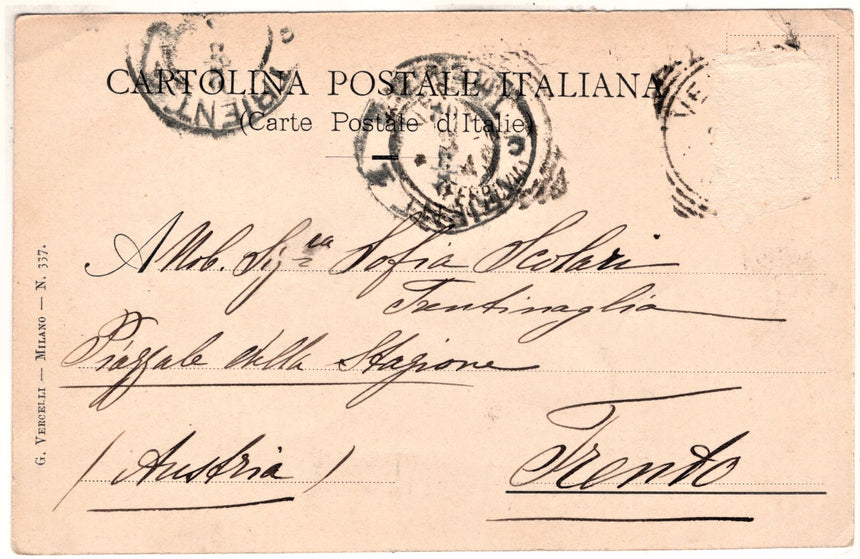 CARTOLINA POSTALE ITALIANA
(Carte Postale d'Italie)
A Nob. Sig.ra Sofia Scolari
Trentinaglia
Piazzale della Stazione
(Austria)
Trento
G. VERCELLI — MILANO — N. 337.
TRIENT
VE